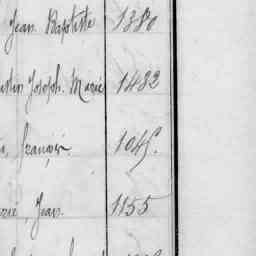 Jean Baptiste 1380
Joseph. Marie 1482
françois. 1045.
Jean. 1155